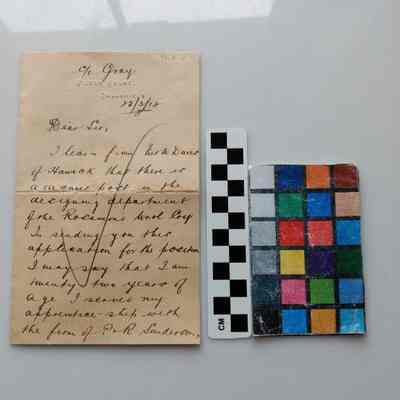 c/o Gray
Dear Sir,
I learn from
of Hawick that there is
a vacant post in the
designing department
of the Wool Coy
In sending you this
application for the position
I may say that I am
twenty two years of
age. I served my
apprentice-ship with
the firm of P & R Sanderson,
CM